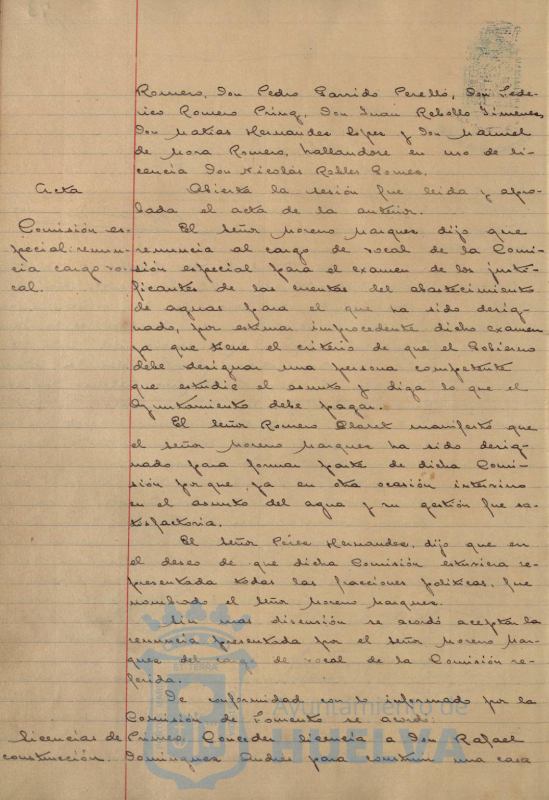 Romero, Don Pedro Garrido Perelló, Don Fede-
rico Romero Pring, Don Juan Rebollo Jimenez,
Don Matias Hernandez López y Don Manuel
de Mora Romero, hallandose en uso de li-
cencia Don Nicolás Robles Gomez.
Acta
Abierta la sesión fue leida y apro-
bada el acta de la anterior.
Comisión es-
pecial: renun-
cia cargo vo-
cal.
El Señor Moreno Marquez dijo que
renuncia al cargo de vocal de la Comi-
sión especial para el examen de los justi-
ficantes de las cuentas del abastecimiento
de aguas para el que ha sido desig-
nado, por estimar improcedente dicho examen
ya que tiene el criterio de que el Gobierno
debe designar una persona competente
que estudie el asunto y diga lo que el
Ayuntamiento debe pagar.
El Señor Romero Claret manifestó que
el Señor Moreno Marquez ha sido desig-
nado para formar parte de dicha Comi-
sión porque ya en otra ocasión intervino
en el asunto del agua y su gestión fue sa-
tisfactoria.
El Señor Pérez Hernandez, dijo que en
el deseo de que dicha Comisión estuviera re-
presentada todas las fracciones politicas, fue
nombrado el Señor Moreno Marquez.
Sin mas discusión se acordó aceptar la
renuncia presentada por el Señor Moreno Mar-
quez del cargo de vocal de la Comisión re-
ferida.
De conformidad con lo informado por la
Comisión de Fomento se acordó:
licencias de
construcción.
Primero, Conceder licencia a Don Rafael
Dominguez Andres para construir una casa
Ayuntamiento de
HUELVA